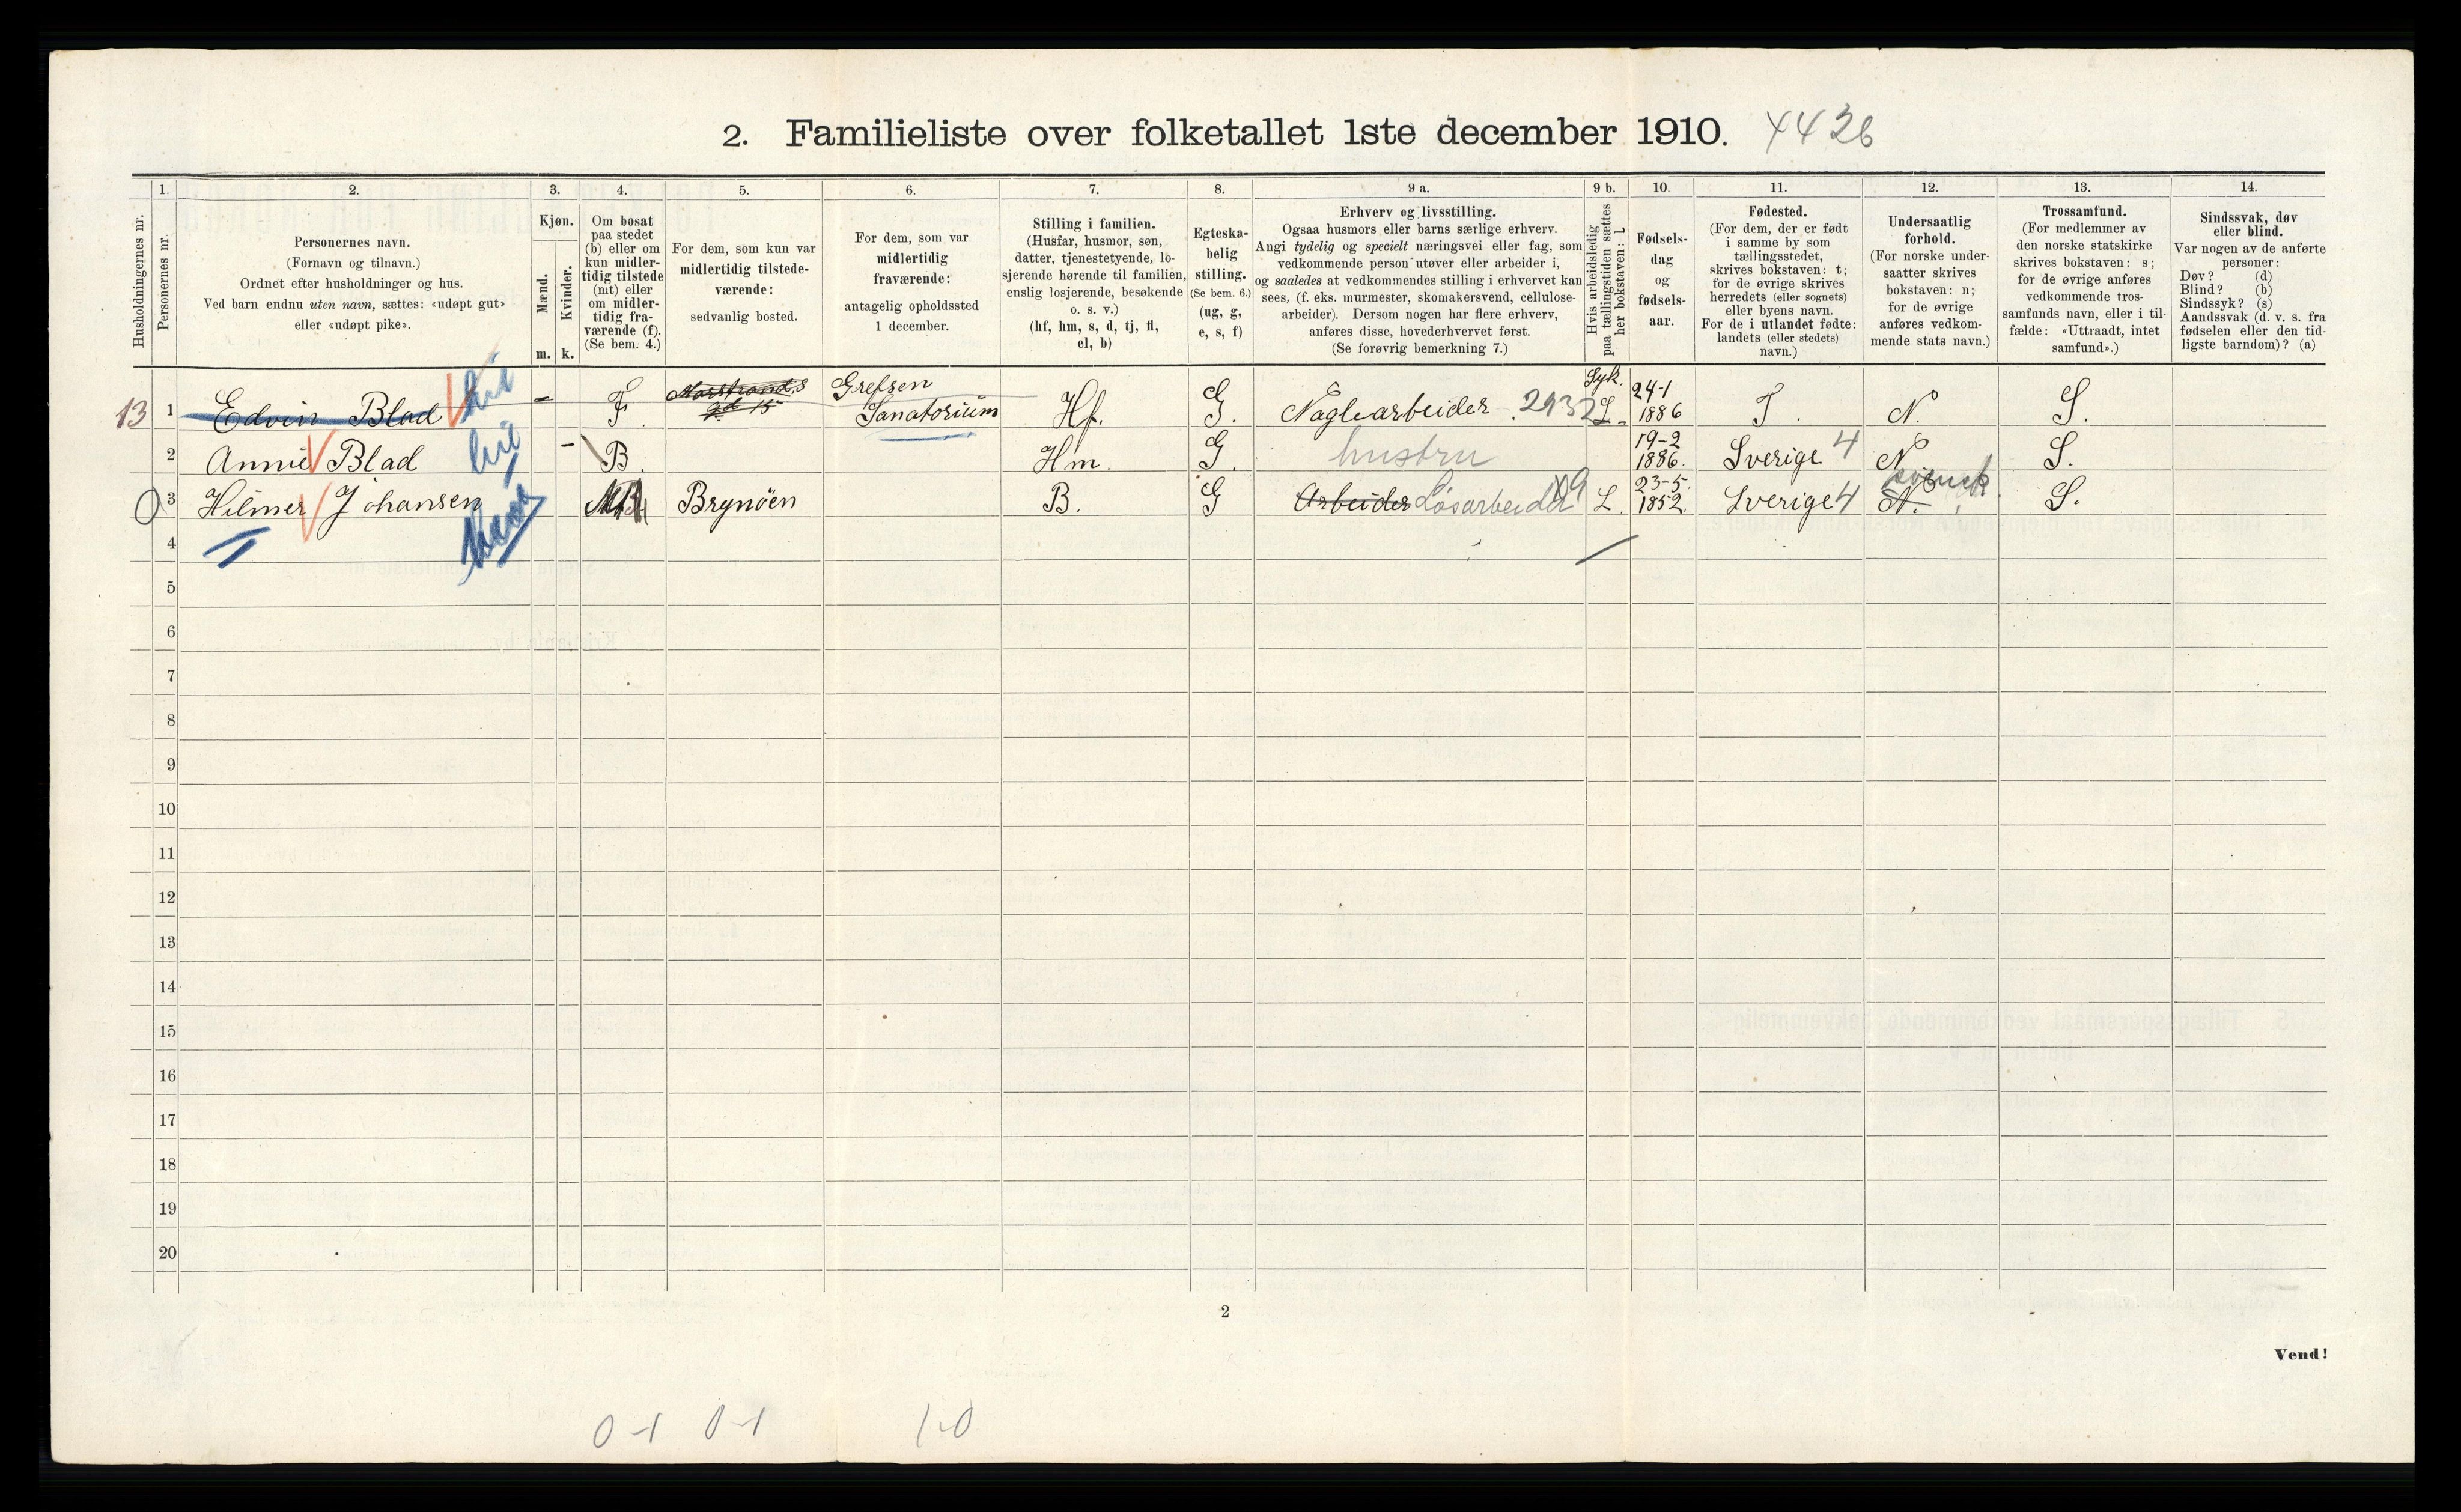 2. Familieliste over folketallet 1ste december 1910. 4436
1. 2. 3. 4. 5. 6. 7. 8. 9 a. 9 b. 10. 11. 12. 13. 14.
Husholdningernes nr.
Personernes nr.
Personernes navn.
(Fornavn og tilnavn.)
Ordnet efter husholdninger og hus.
Ved barn endnu uten navn, sættes: «udøpt gut»
eller «udøpt pike».
Kjøn.
Mænd.
Kvinder.
m. k.
Om bosat
paa stedet
(b) eller om
kun midler-
tidig tilstede
(mt) eller
om midler-
tidig fra-
værende (f).
(Se bem. 4.)
For dem, som kun var
midlertidig tilstede-
værende:
sedvanlig bosted.
For dem, som var
midlertidig
fraværende:
antagelig opholdssted
1 december.
Stilling i familien.
(Husfar, husmor, søn,
datter, tjenestetyende, lo-
sjerende hørende til familien,
enslig losjerende, besøkende
o. s. v.)
(hf, hm, s, d, tj, fl,
el, b)
Egteska-
belig
stilling.
(Se bem. 6.)
(ug, g,
e, s, f)
Erhverv og livsstilling.
Ogsaa husmors eller barns særlige erhverv.
Angi tydelig og specielt næringsvei eller fag, som
vedkommende person utøver eller arbeider i,
og saaledes at vedkommendes stilling i erhvervet kan
sees, (f. eks. murmester, skomakersvend, cellulose-
arbeider). Dersom nogen har flere erhverv,
anføres disse, hovederhvervet først.
(Se forøvrig bemerkning 7.)
Hvis arbeidsledig
paa tællingstiden sættes
her bokstaven: L
Fødsels-
dag
og
fødsels-
aar.
Fødested.
(For dem, der er født
i samme by som
tællingsstedet,
skrives bokstaven: t;
for de øvrige skrives
herredets (eller sognets)
eller byens navn.
For de i utlandet fødte:
landets (eller stedets)
navn.)
Undersaatlig
forhold.
(For norske under-
saatter skrives
bokstaven: n;
for de øvrige
anføres vedkom-
mende stats navn.)
Trossamfund.
(For medlemmer av
den norske statskirke
skrives bokstaven: s;
for de øvrige anføres
vedkommende tros-
samfunds navn, eller i til-
fælde: «Uttraadt, intet
samfund».)
Sindssvak, døv
eller blind.
Var nogen av de anførte
personer:
Døv? (d)
Blind? (b)
Sindssyk? (s)
Aandssvak (d. v. s. fra
fødselen eller den tid-
ligste barndom)? (a)
13 1 Edvin Blad - F Grefsen Sanatorium Hf. G. Naglearbeider 2932 Syk. L. 24-1 1886 T. N. S.
2 Annie Blad - B. Hm. G. hustru 19-2 1886. Sverige 4 N S.
3 Hilmer Johansen Brynöen B. G Arbeider Løsarbeider L. 23-5. 1852. Sverige 4 N. svensk S.
4
5
6
7
8
9
10
11
12
13
14
15
16
17
18
19
20
2
Vend!
0-1 0-1 1-0